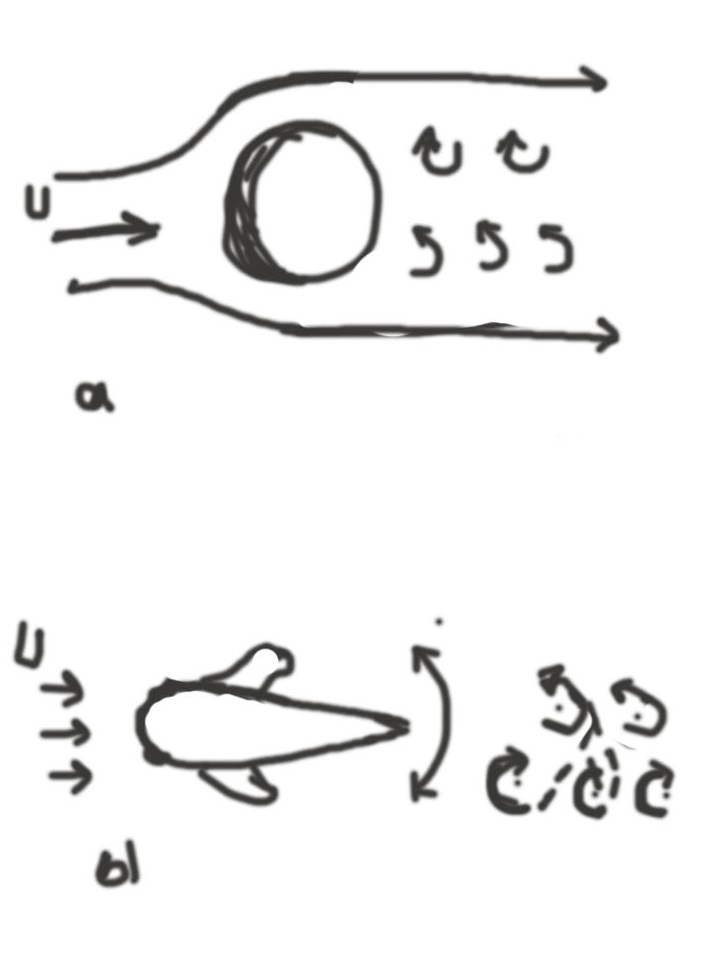 U
a
U
b)